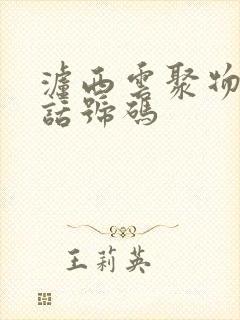 瀘西雲聚物
話號碼
王莉英